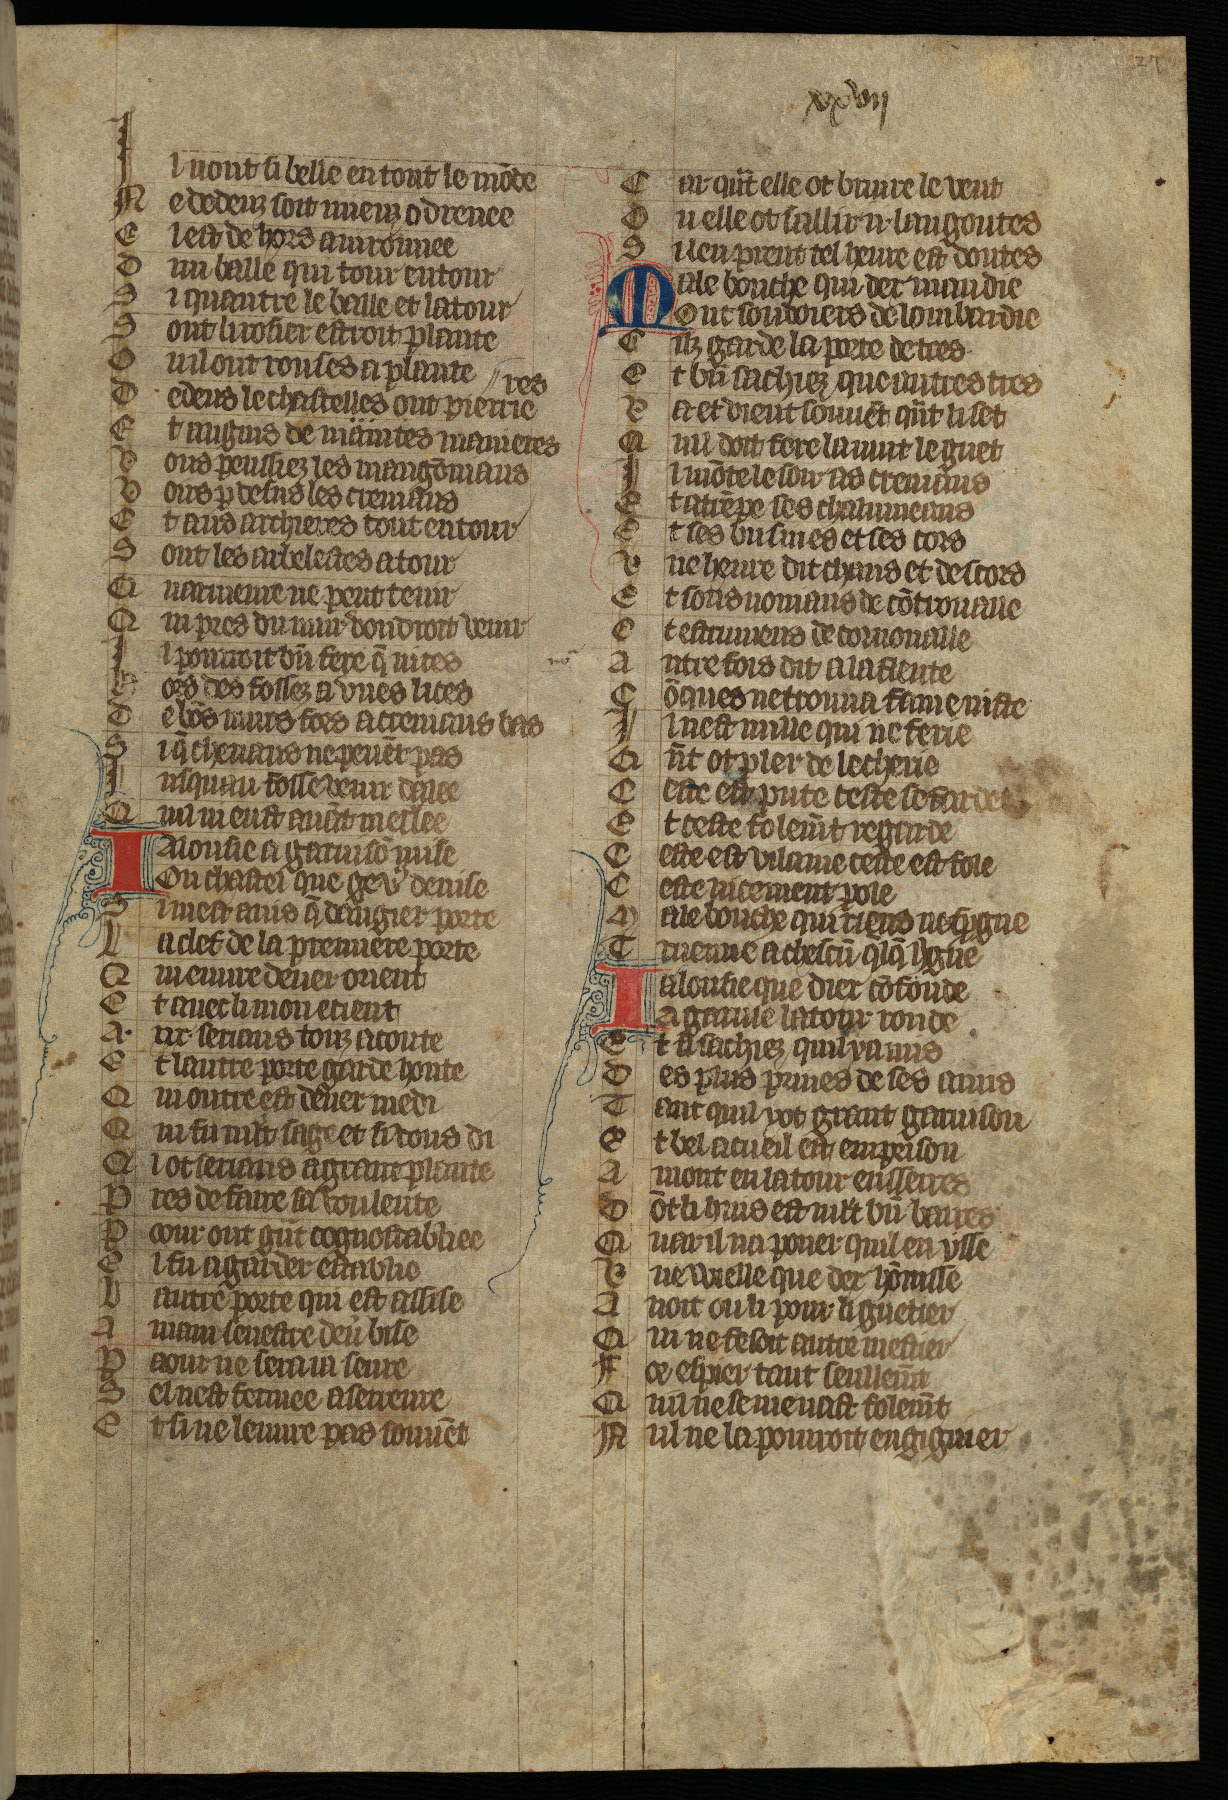 27
xxvii
Il nont si belle en tout le mōde
Ne dedenz soit mienz odrence
El est de hors auironnee
Dun balle qui tour entour
Si quantre le balle et la tour
Sont li rosier estroit plante
Ou il ont roses a plante
Dedens le chastel les ont pierrie // res
Et augins de maintes manieres
Vous peussiez les mangōniaus
Vous p desus les creniaus
Et aus archieres tout entour
Sont les arbelestes a tour
Quarmeure ne peut tenir
Qui pres du mur voudroit venir
Il pourroit bn̄ fere q̄ nices
Hors des fossez a vnes lices
De bōs murs fors a creniaus bas
Si q̄ cheuaus ne peuēt pas
Iusquau fosse venir dalee
Quil ni eust auāt mellee
Ialousie a garnisō mise
Ou chastel que ge vꝰ deuise
Si mest auis q̄ dāgier porte
La clef de la premiere porte
Qui euure deuer orient
Et auec li mon etient
A .xxx. serians touz a conte
Et lautre porte garde honte
Qui oeuure est deuer medi
Qui fu mlt sage et si vous di
Ql ot serians a grant plante
Pres de faire sa voulente
Paour ont gūt cognostabliee
Si fu a garder establie
Lautre porte qui est assise
A main senestre deū bise
Paour ne sera ia seure
Sel nest fermee a serreure
Et si ne leuure pas souuēt
Car qūt elle ot bruire le vent
Ou elle ot sallir .ii. langoutes
Si len prent tel heure est doutes
Male bouche qui der maudie
Ont soudoiers de lombardie
Cilz garde la porte detres
Et bn̄ sachiez que autres tres
Va et vient souuēt qūt li set
Quil doit fere la nuit le guet
Il mōte le soir us creniaus
Et atrēpe ses chalumeaus
Et ses busines et ses cors
Vne heure dit chans et descors
Et sons nouuiaus de cōtrouaille
Et estrumens de cornouaille
Autre fois dit a la fleute
Cōques ne trouua fame iuste
Il nest nulle qui ne serie
Qn̄t ot pler de lecherie
Ceste est pute ceste se farde
Et ceste folemt̄ regarde
Ceste est vilaine ceste est fole
Ceste nicement pole
Male bouche qui riens ne espgne
Treuue a chescū qlq̄ hgne
Ialousie que dier cōfonde
A garnie la tour ronde
Et si sachiez quil ya mis
Des plus priues de ses amis
Tant quil yot grant garnison
Et bel acueil est emprison
Amont en la tour enserres
Dōt li huis est mlt bn̄ barres
Quar il na poner quil en ysse
Vne vielle que der hōnisse
Auoit o li pour li guetier
Qui ne fesoit autre mestier
Fors espier tant seullemt̄
Quil ne se menast folemt̄
Nul ne la pourroit engignier